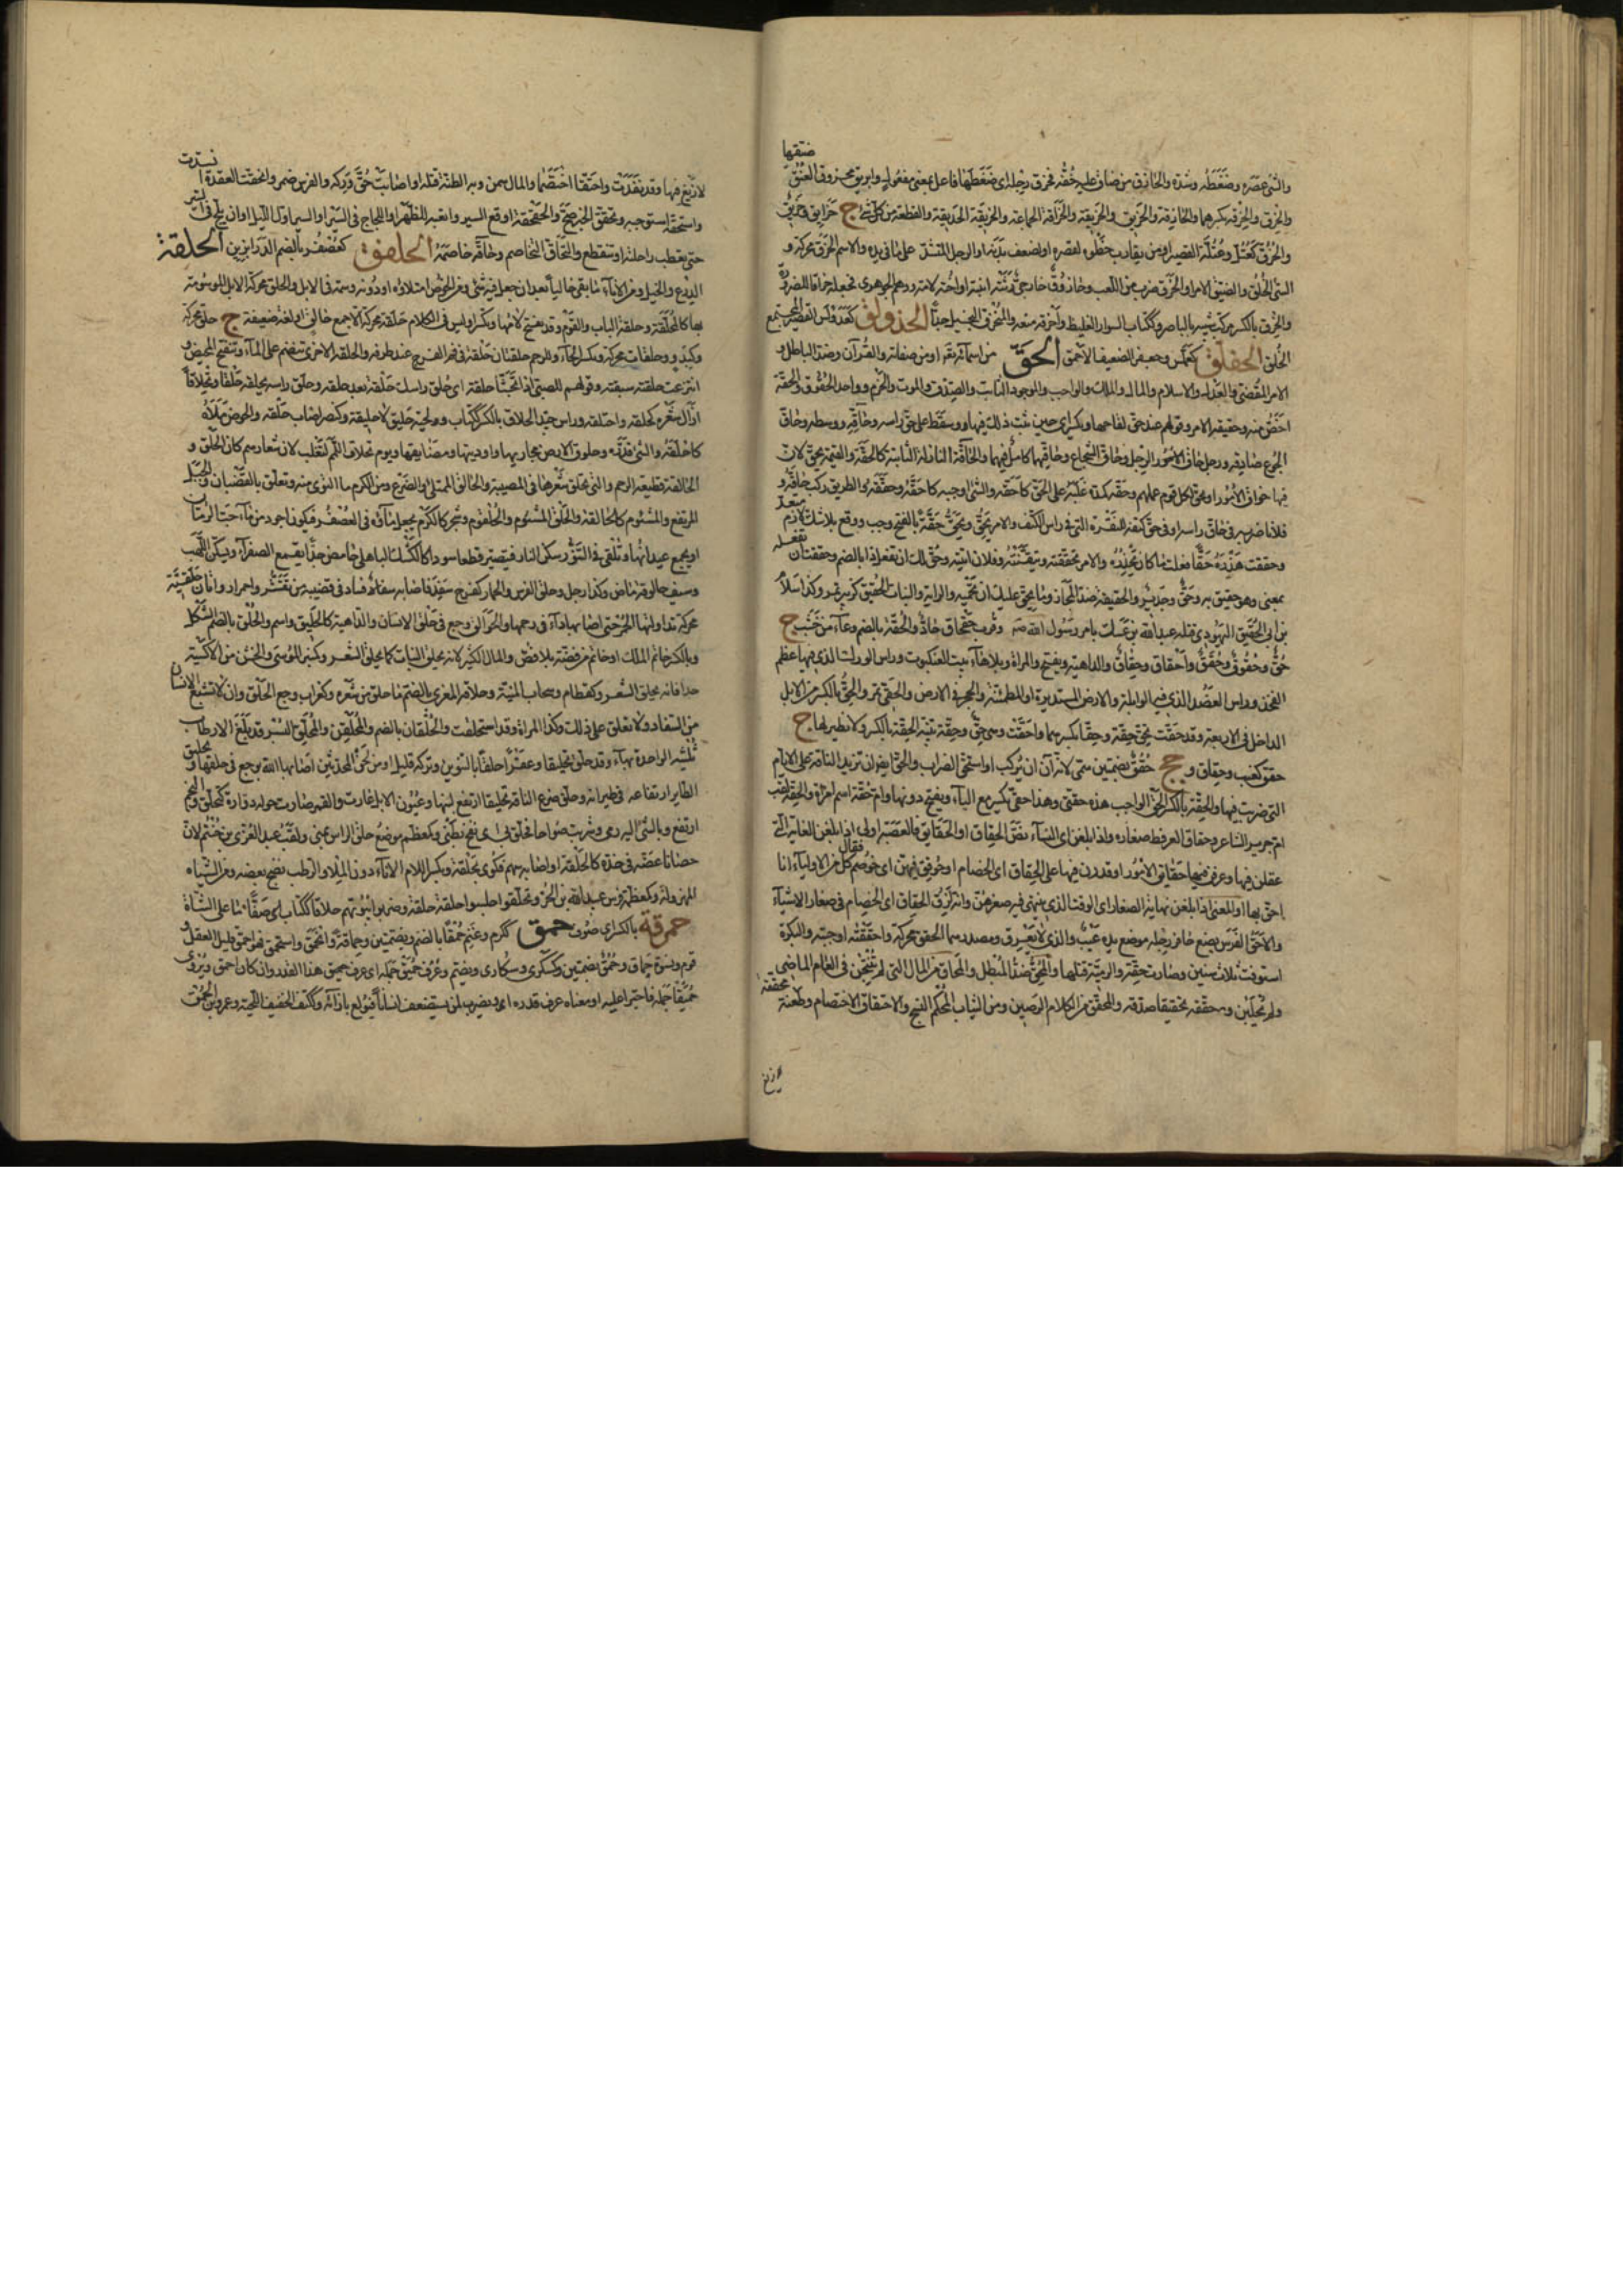 ضتقها
والشئ عصره وضغطه وشده والحازق من ضاق عليه خفه فحزق رجله اى ضغطها فاعل بمعنى مفعول وابريق محزوق العنق
والحزق والحزقة بكسرهما والحازقة والحزيق والحزيقة والحزاقة الجماعة والحزيقة الحديقة والقطعة من كل شئ ج حزايق وحزيق
والحزق كعتل وعتلة القصير ومن يقارب خطوه لقصره او لضعف بدنه او الرجل المتشدد على ما فى يديه والاسم الحزق محركة و
السئ الخلق والضيق الامر او الحزقة ضرب من اللعب وحازوق خارجى رثته ابنته او اخته لا امه ووهم الجوهرى فجعله حزاقا للضرورة
والحزق بالكسر مركب شبيه بالباصر وككتاب السوار الغليظ واحزقه منعه والمتحزق البخيل جدا الحذولق كعدولس القصير المجتمع
الخلق الحفلق كعملس وجعفر الضعيف الاحمق الحق من اسمائه تعالى او من صفاته والقرآن وضد الباطل و
الامر المقضى والعدل والاسلام والمال والملك والواجب والموجود الثابت والصدق والموت والحزم وواحد الحقوق والحقة
اخص منه وحقيقة الامر وقولهم عند حق لقاحها ويكسر اى حين ثبت ذلك فيها وسقط على حق راسه وحاقه ووسطه وحاق
الجوع صادقه ورجل حاق الرجل وحاق الشجاع وحاقهما كامل فيهما والحاقة النازلة الثابتة كالحقة والقيمة بحق لان
فيها حواق الامور او يحق لكل قوم عملهم وحقه كمده غلبه على الحق كاحقه والشئ اوجبه كاحقه وحققه والطريق ركب حاقه و
فلانا ضربه فى حاق راسه او فى حق كتفه للنقرة التى فى راس الكتف والامر يحق ويحق حقة بالفتح وجب ووقع بلا شك لازم متعد
وحققت حذره حقا فعلت ما كان يحذره والامر تحققته وتيقنته وفلانا اتيته وحق لك ان تفعل ذا بالضم وحققت ان تفعله
بمعنى وهو حقيق به وحق وجدير والحقيقة ضد المجاز وما يحق عليك ان تحميه والراية وبنات الحقيق كزبير تمر وكذا سلام
بن ابى الحقيق اليهودى قتله عبدالله بن عتيك بامر رسول الله صم وقرب حقحاق جاد والحقة بالضم وعاء من خشب ج
حق وحقوق وحقق واحقاق وحقاق والداهية ويفتح والمراة وبلا هاء بيت العنكبوت وراس الورك الذى فيها عظم
الفخذ وراس العضد الذى فيه الوابلة والارض المستديرة او المطمئنة والجحر فى الارض والحق تمر والحق بالكسر من الابل
الداخل فى الاربعة وقد حقت تحق حقة وحقا بكسرهما واحقت وهى حق وحقة بينة الحقة بالكسر ولا نظير لها ج
حقق كعنب وحقاق و جج حقق بضمتين سمى لانه آن ان يركب او استحق الضراب والحق ايضا ان تزيد الناقة على الايام
التى ضربت فيها والحقة بالكسر الحق الواجب هذه حقتى وهذا حقى يكسر مع التاء ويفتح دونها وام حقة اسم امراة والحقة لقب
ام جرير الشاعر وحقاق العرفط صغاره ولذا بلغن اى النساء نص الحقاق او الحقايق فالعصبة اولى اى اذا بلغن الغاية التى
عقلن فيها وعرفن فيها حقايق الامور او قدرن فيها على الحقاق اى الخصام او حوقق فيهن اى خوصم فقال كل من الاولياء انا
احق بها او المعنى اذا بلغن نهاية الصغار اى الوقت الذى ينتهى فيه صغرهن وانه لنزق الحقاق اى الخصام فى صغار الاشياء
والاحق الفرس يضع حافر رجله موضع يده عيب والذى لا يعرق ومصدرهما الحقق محركة واحققته اوجبته والبكرة
استوفت ثلاث سنين وصارت حقة والرمية قتلها والمحق ضد المبطل والمحاق من المال التى لم تنتجن فى العام الماضى
ولم تحلبن وحققه تحقيقا صدقه والمحقق من الكلام الرصين ومن الثياب المحكم النسج والاحتقاق الاختصام وطعنة محتقة
لا زيغ
لا زيغ فيها وقد نفذت واحتقا اختصما والمال سمن وبه الطعنة قتله او اصابت حق وركه والفرس ضمر وانحقت العقدة انشدت
واستحقه استوجبه وتحقق الخبر صح والحقحقة ارفع السير واتعبه للظهر او اللجاج فى السير او السير اول الليل او ان يلج فى السير
حتى يعطب راحلته او تنقطع والتحاق التخاصم وحاقه خاصمه الحلفق كعصفر بالضم الدرابزين الحلقة
الدرع والخيل ومن الاناء ما بقى خاليا بعد ان جعل فيه شئ ومن الحوض امتلاؤه او دونه وسمة فى الابل والحلق محركة الابل الموسومة
بها كالمحلقة وحلقة الباب والقوم وقد يفتح لامهما ويكسر او ليس فى الكلام حلقة محركة الا جمع حالق او لغة ضعيفة ج حلق محركة
وكبدر وحلقات محركة وبكسر الحاء وللرحم حلقتان حلقة فى فم الفرج عند طرفه والحلقة الاخرى تنضم على الماء وتنفتح للحيض و
انتزعت حلقته سبقته وقولهم للصبى اذا تجشأ حلقة اى حلق راسك حلقة بعد حلقة وحلق راسه يحلقه حلقا وتحلاقا
ازال شعره كحلقه واحتلقه وراس جيد الحلاق بالكسر ككتاب ولحية حليق لا حليقة وكنصر اصاب حلقه والحوض ملأه
كاحلقه والشئ قدره وحلوق الارض مجاريها واوديتها ومضايقها ويوم تحلاق اللمم لتغلب لان شعارهم كان الحلق و
الحالقة قطيعة الرحم والتى تحلق شعرها فى المصيبة والحالق الممتلئ والضرع ومن الكرم ما التوى منه وتعلق بالقضبان والجبل
المرتفع والمشئوم كالحالقة والحلق المشئوم والحلقوم وشجر كالكرم يجعل ماؤه فى العصفر فيكون اجود من ماء حب الرمان
او يجمع عيدانها وتلقى فى التنور سكن النار فيصير قطعا سودا كالكشك البابلى حامض جدا يقمع الصفراء ويسكن اللهب
وسيف حالوقة ماض وكذا رجل وحلق الفرس والحمار كفرح سفد فاصابه فساد فى قضيبه من تقشر واحمرار واتان حلقية
محركة تداولتها الحمر حتى اصابها داء فى رحمها والحوالق وجع فى حلق الانسان والداهية كالحليق واسم والحلق بالضم الثكل
وبالكسر خاتم الملك او خاتم من فضة بلا فص والمال الكثير لانه يحلق النبات كما يحلق الشعر وكمنبر الموسى والخشن من الاكسية
جدا فانه يحلق الشعر وكقطام وسحاب المنية وحلاقة المعزى بالضم ما حلق من شعره وكغراب وجع الحلق وان لا تشبع الاتان
من السفاد ولا تعلق على ذلك وكذا المراة وقد استحلقت والحلقان بالضم والمحلقن والمحلق البسر قد بلغ الارطاب
ثلثيه الواحدة بهاء وقد حلق تحليقا وعقرا حلقا بالتنوين وتركه قليل او من لحن المحدثين اصابها الله بوجع فى حلقها وتحليق
الطاير ارتفاعه فى طيرانه وحلق ضرع الناقة تحليقا ارتفع لبنها وعيون الابل غارت والقمر صارت حوله دوارة كتحلق والنجم
ارتفع وبالشئ اليه رمى وشربت صواحا فحلق بى اى نفخ بطنى وكمعظم موضع حلق الراس بمنى ولقب عبد العزى بن حنتم لان
حصانا عضه فى خده كالحلقة او اصابه سهم فكوى بحلقة وبكسر اللام الاناء دون الملء والرطب نضج بعضه ومن الشياه
المهزولة وكمعظمة فرس عبيدالله بن الحر وتحلقوا جلسوا حلقة حلقة وضربوا بيوتهم حلاقا ككتاب اى صفا
حمرقة بالكسر اى صوف حمق ككرم وغنم حمقا بالضم وبضمتين وحماقة وانحمق واستحمق فهو احمق قليل العقل و
قوم ونسوة حماق وحمق بضمتين وكسكرى وسكارى ويضم وعرف حميق جمله اى عرف حمق هذا القدر وان كان احمق ويروى
حميقا جمله فاجترا عليه او معناه عرف قدره او يضرب لمن يستضعف انسانا فيولع باذائه وككتف الخفيف اللحية وعمرو بن الحمق